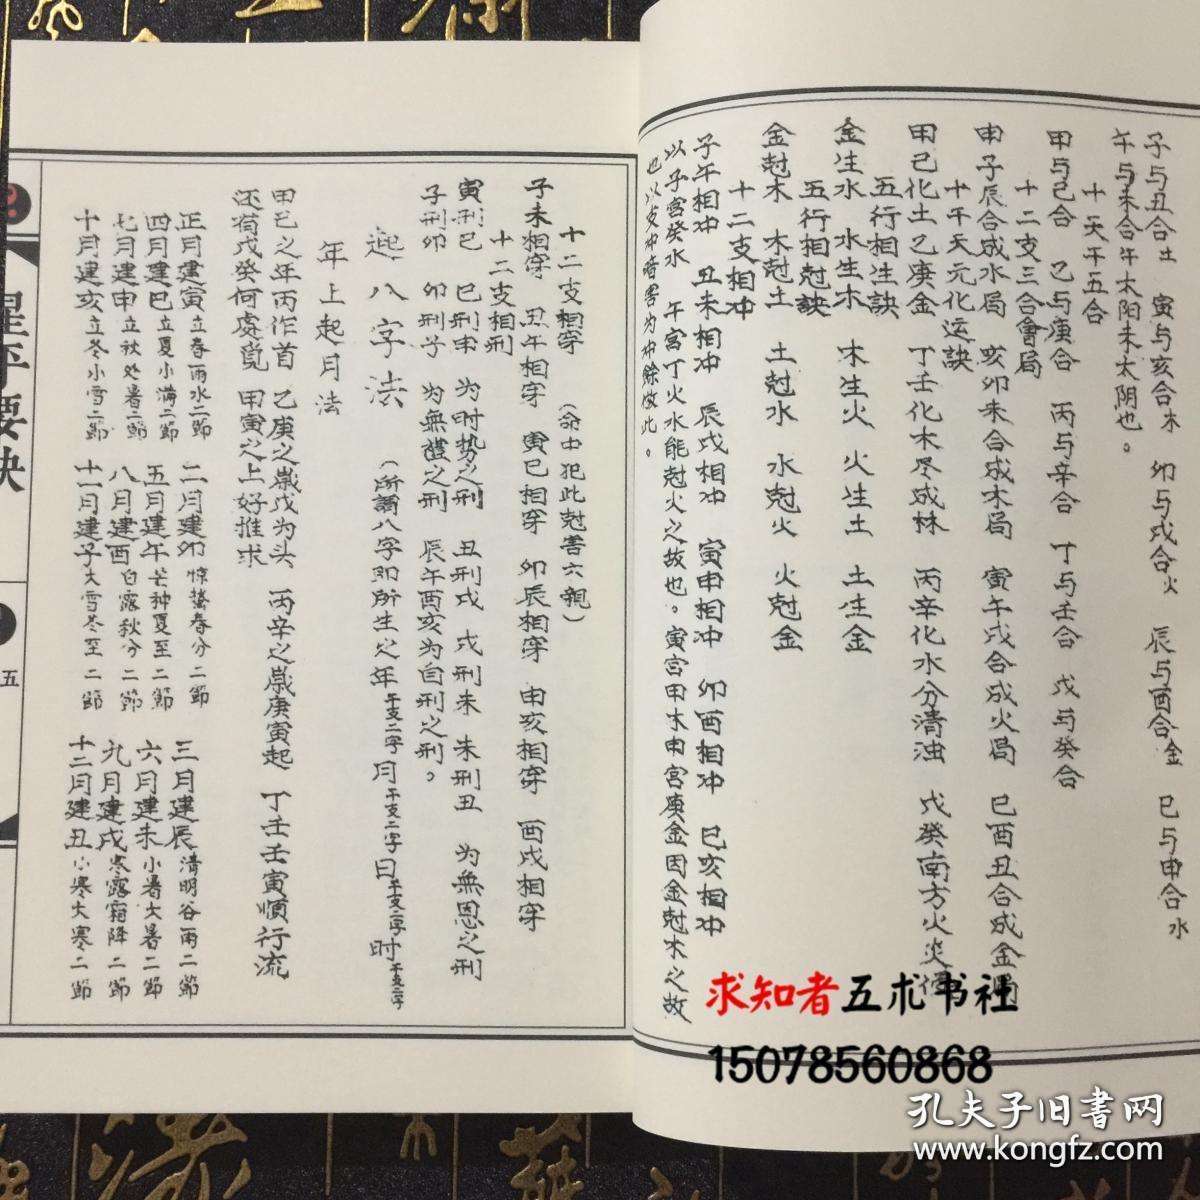 子与丑合土　寅与亥合木　卯与戌合火　辰与酉合金　巳与申合水
午与未合午太阳未太阴也。
十天干五合
甲与己合　乙与庚合　丙与辛合　丁与壬合　戊与癸合
十二支三合會局
申子辰合成水局　亥卯未合成木局　寅午戌合成火局　巳酉丑合成金局
十干天元化运訣
甲己化土乙庚金　丁壬化木尽成林　丙辛化水分清浊　戊癸南方火炎
五行相生訣
金生水　水生木　木生火　火生土　土生金
五行相尅訣
金尅木　木尅土　土尅水　水尅火　火尅金
十二支相冲
子午相冲　丑未相冲　辰戌相冲　寅申相冲　卯酉相冲　巳亥相冲
以子宫癸水　午宫丁火水能尅火之故也。寅宫甲木申宫庚金因金尅木之故
也以支冲暗害为冲餘仿此。
十二支相穿　（命中犯此尅害六親）
子未相穿　丑午相穿　寅巳相穿　卯辰相穿　申亥相穿　酉戌相穿
十二支相刑
寅刑巳　巳刑申　为时势之刑　丑刑戌　戌刑未　未刑丑　为無恩之刑
子刑卯　卯刑子　为無禮之刑　辰午酉亥为自刑之刑。
起八字法　（所謂八字即所生之年干支二字月干支二字日干支二字时干支二字
年上起月法
甲己之年丙作首　乙庚之歲戊为头　丙辛之歲庚寅起　丁壬壬寅順行流
还有戊癸何處覓　甲寅之上好推求
正月建寅立春雨水二節　二月建卯惊蟄春分二節　三月建辰清明谷雨二節
四月建巳立夏小满二節　五月建午芒种夏至二節　六月建未小暑大暑二節
七月建申立秋处暑二節　八月建酉白露秋分二節　九月建戌寒露霜降二節
十月建亥立冬小雪二節　十一月建子大雪冬至二節　十二月建丑小寒大寒二節
星平要诀
五
求知者五术书社
15078560868
孔夫子旧書网
www.kongfz.com